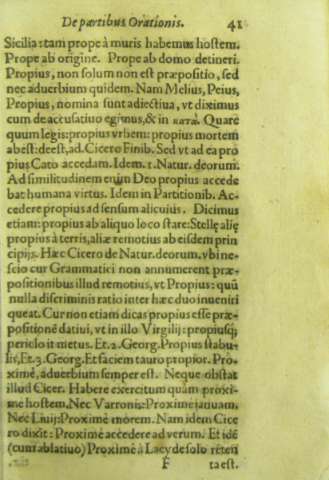 De partibus Orationis. 41
Sicilia: tam prope à muris habemus hostem.
Prope ab origine. Prope ab domo detineri.
Propius, non solum non est præpositio, sed
nec aduerbium quidem. Nam Melius, Peius,
Propius, nomina sunt adiectiua, vt diximus
cum de accusatiuo egimus, & in κατὰ. Quare
quum legis: propius vrbem: propius mortem
abest: deest, ad. Cicero Finib. Sed vt ad ea pro
pius Cato accedam. Idem. 1. Natur. deorum.
Ad similitudinem enim Deo propius accede
bat humana virtus. Idem in Partitionib. Ac-
cedere propius ad sensum alicuius. Dicimus
etiam: propius ab aliquo loco stare: Stellę alię
propius à terris, aliæ remotius ab eisdem prin
cipijs. Hæc Cicero de Natur. deorum. vbi ne-
scio cur Grammatici non annumerent præ-
positionibus illud remotius, vt Propius: quū
nulla discriminis ratio inter hæc duo inueniri
queat. Cur non etiam dicas propius esse præ-
positionē datiui, vt in illo Virgilij: propiusq́;
periclo it metus. Et. 2. Georg. Propius stabu-
lis, Et. 3. Georg. Et faciem tauro propior. Pro-
ximè, aduerbium semper est. Neque obstat
illud Cicer. Habere exercitum quàm proxi-
me hostem. Nec Varronis: Proxime aquam.
Nec Liuij: Proximè morem. Nam idem Cice
ro dixit: Proximè accedere ad verum. Et idē
(cum ablatiuo) Proximè à Lacyde solo reten
F ta est.